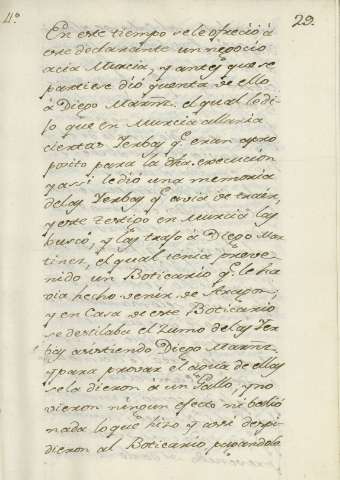 4º
29.
En este tiempo se le ofreció á
este declarante un negocio
acia Murcia, y antes que se
partiese dió quenta de ello
á Diego Martnz. el qual le di-
jo que en Murcia allaria
ciertas Yerbas qe. eran apro
posito para la dha. execución
y assi le dió una memoria
de las Yerbas qe. avia de traér,
y este Testigo en Murcia las
buscó, y las trajo á Diego Mar-
tinez, el qual tenia preve-
nido un Boticario qe. le ha-
via hecho venir de Aragon;
y en Casa de este Boticario
se destilaba el Zumo de las Yer
bas asistiendo Diego Martnz.
y para provar el agua de ellas
se la dieron á un Gallo, y no
vieron ningun efecto ni balió
nada lo que hizo y assi despi-
dieron al Boticario pagandole